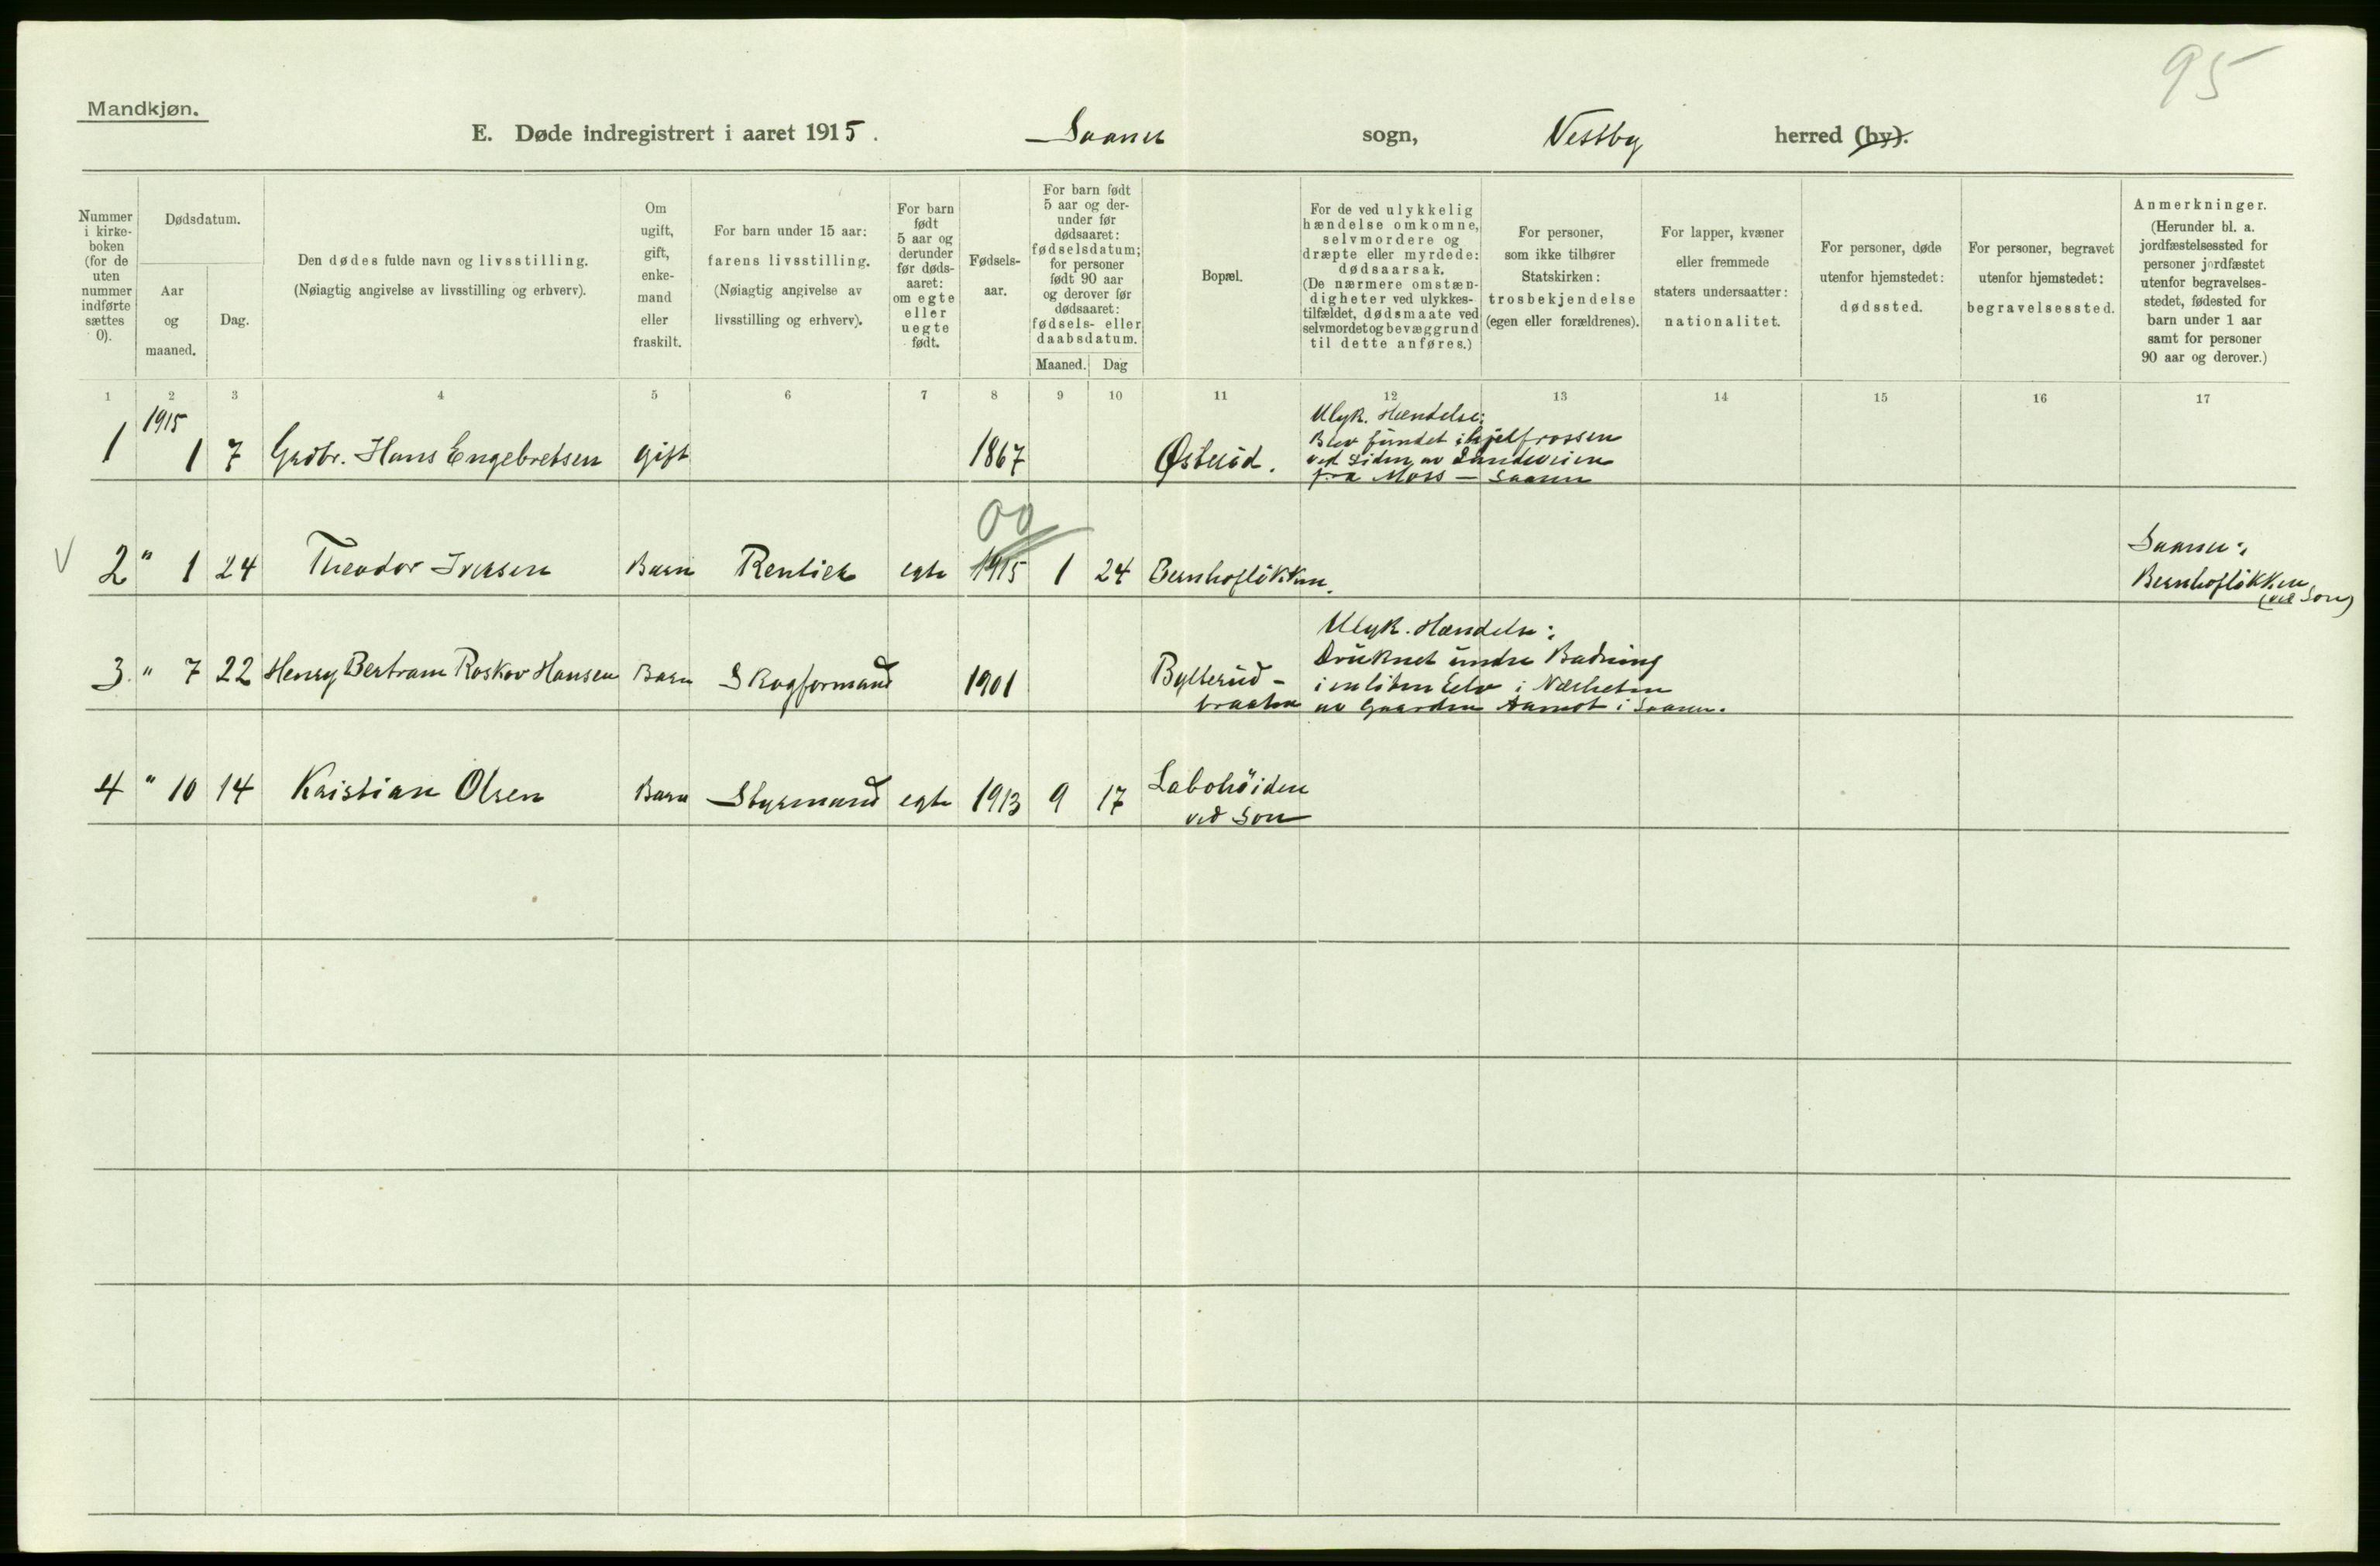 95
Mandkjøn.
E. Døde indregistrert i aaret 1915. Saaner sogn, Vestby herred (by).
Nummer i kirke- boken (for de uten nummer indførte sættes 0).
Dødsdatum.
Aar og maaned.
Dag.
Den dødes fulde navn og livsstilling.
(Nøiagtig angivelse av livsstilling og erhverv).
Om ugift, gift, enke- mand eller fraskilt.
For barn under 15 aar:
farens livsstilling.
(Nøiagtig angivelse av
livsstilling og erhverv).
For barn født 5 aar og derunder før døds- aaret: om egte eller uegte født.
Fødsels- aar.
For barn født 5 aar og der- under før dødsaaret: fødselsdatum; for personer født 90 aar og derover før dødsaaret: fødsels- eller daabsdatum.
Maaned. Dag
Bopæl.
For de ved ulykkelig
hændelse omkomne,
selvmordere og
dræpte eller myrdede:
dødsaarsak.
(De nærmere omstæn-
digheter ved ulykkes-
tilfældet, dødsmaate ved
selvmordet og bevæggrund
til dette anføres.)
For personer,
som ikke tilhører
Statskirken:
trosbekjendelse
(egen eller forældrenes).
For lapper, kvæner
eller fremmede
staters undersaatter:
nationalitet.
For personer, døde
utenfor hjemstedet:
dødssted.
For personer, begravet
utenfor hjemstedet:
begravelsessted.
Anmerkninger.
(Herunder bl. a.
jordfæstelsessted for
personer jordfæstet
utenfor begravelses-
stedet, fødested for
barn under 1 aar
samt for personer
90 aar og derover.)
1 2 3 4 5 6 7 8 9 10 11 12 13 14 15 16 17
1 1915 1 7 Grdbr. Hans Engebretsen gift 1867 Østeröd.
Ulyk. Hændelse:
Blev fundet ihjelfrossen
ved Siden av Landeveien
fra Moss — Saaner
00
V 2 " 1 24 Theodor Iversen Barn Rentier egte 1915 1 24 Bernhofløkken.
Saaner:
Bernhofløkken
(ved Son)
3. " 7 22 Henry Bertram Roskov Hansen Barn Skogformand 1901 Bylterud-
braaten
Ulyk. Hændelse:
Druknet under Badning
i en liten Elv i Nærheten
av Gaarden Aamot i Saaner.
4 " 10 14 Kristian Olsen Barn Styrmand egte 1913 9 17 Labohöiden
ved Son